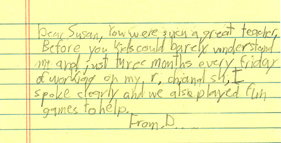 Dear Susan, You were such a great teacher.
Before you kids could barely understand
me and just three months every friday
of working on my r, ch, and sh, I
spoke clearly and we also played fun
games to help.
From, D